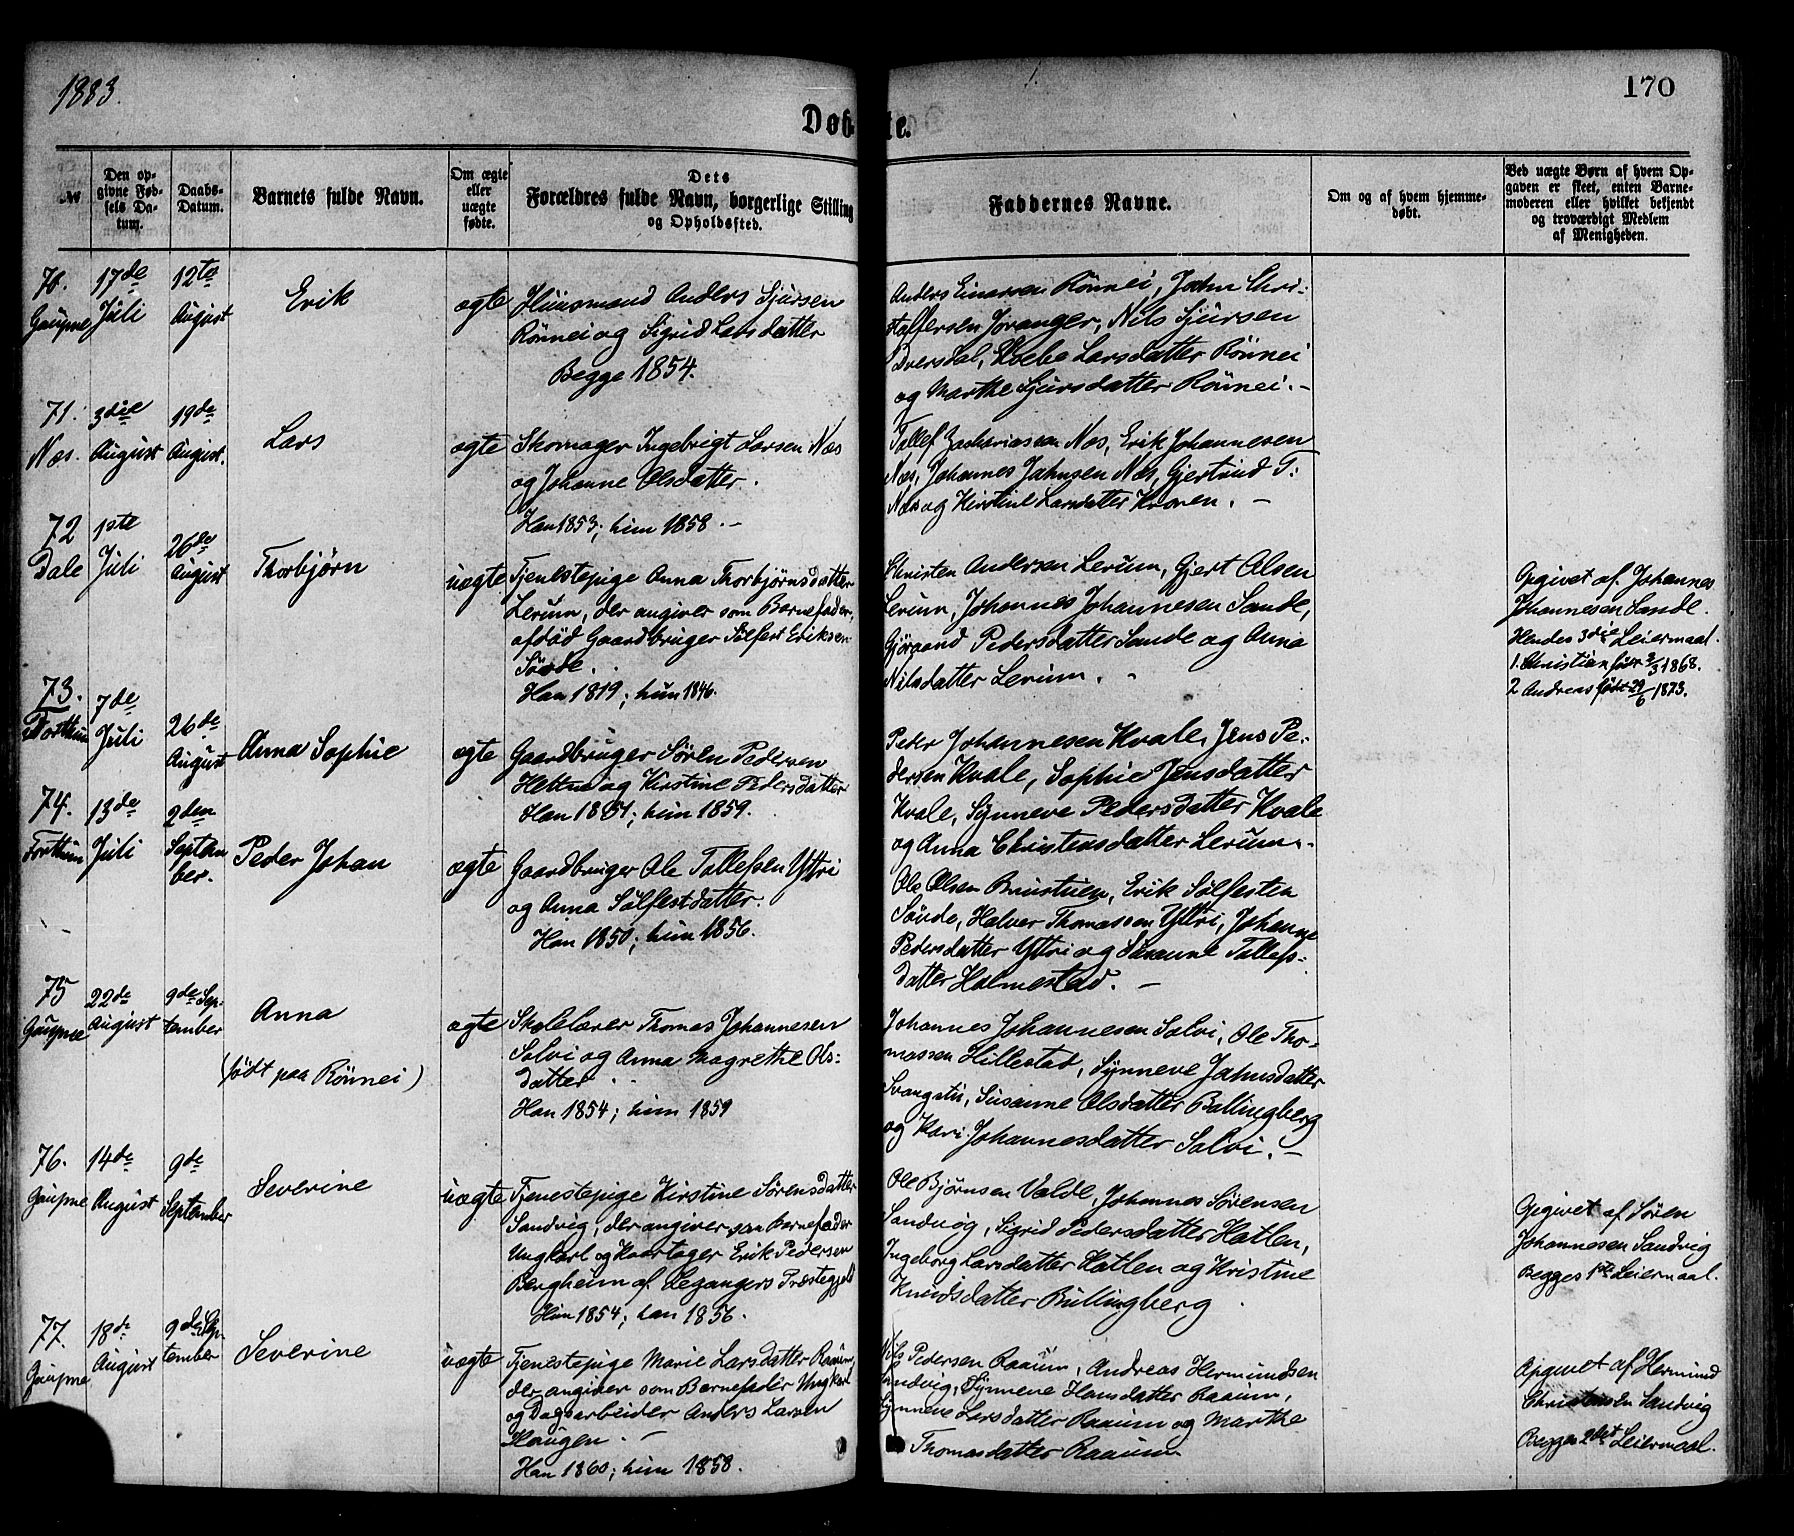 1883.
170
Døbte.
№
Den opgivne Fødsels Datum.
Daabs-Datum.
Barnets fulde Navn.
Om ægte eller uægte fødte.
Dets Forældres fulde Navn, borgerlige Stilling og Opholdssted.
Faddernes Navne.
Om og af hvem hjemmedøbt.
Ved uægte Børn af hvem Opgaven er skeet, enten Barnemoderen eller hvilket bekjendt og troværdigt Medlem af Menigheden.
70. Gaupne
17de Juli
12te August
Erik
ægte
Huusmand Anders Sjursen
Rönnei og Sigrid Larsdatter
Begge 1854.
Anders Einarsen Rönnei, John Chri-
stoffersen Joranger, Nils Sjursen
Dversdal, Larsdatter Rönnei
og Marthe Sjursdatter Rönnei. –
71. Næs.
3die August
19de August.
Lars
ægte
Skomager Ingebrigt Larsen Næs
og Johanne Olsdatter.
Han 1853; hun 1858. –
Tollef Zachariassen Næs, Erik Johannesen
Næs, Johannes Jahnsen Næs, Gjertrud T:
Næs og Kirstine Larsdatter Kronen. –
72 Dale
1ste Juli
26de August
Thorbjørn
uægte
Tjenestepige Anna Thorbjørnsdatter
Lerum, der angiver som Barnefader,
afdöd Gaardbruger Sølfest Eriksen
Søvde.
Han 1819; hun 1846.
Christen Andersen Lerum, Gjert Olsen
Lerum, Johannes Johannesen Sande,
Gjöraand Pedersdatter Sande og Anna
Nilsdatter Lerum.
Opgivet af Johannes
Johannesen Sande.
Hendes 3die Leiermaal.
1. Christian født 3/3 1868.
2 Andreas født 29/6 1873.
73. Forthun
7de Juli
26de August
Anna Sophie
ægte
Gaardbruger Søren Pedersen
og Kirstine Pedersdatter
Han 1851; hun 1859.
Peder Johannesen Kvale, Jens Pe-
dersen Kvale, Sophie Jensdatter
Kvale, Synneve Pedersdatter Kvale
og Anna Christensdatter Lerum.
74. Forthun
13de Juli
2den September.
Peder Johan
ægte
Gaardbruger Ole Tollefsen Yttri
og Anna Sølfestdatter.
Han 1850; hun 1856.
Ole Olsen Brustuen, Erik Sølfesten
Søvde, Halvor Thomassen Yttri, Johanne
Pedersdatter Yttri og Susanne Tollefs-
datter Holmestad. –
75 Gaupne
22de August
9de September
Anna
(født paa Rönnei)
ægte
Skolelærer Thomas Johannesen
Solvi og Anna Magrethe Ols-
datter.
Han 1854; hun 1859
Johannes Johannesen Solvi, Ole Tho-
massen Hillestad, Synneve Jahnsdatter
Svangstu, Susanne Olsdatter Bollingberg
og Kari Johannesdatter Solvi. –
76. Gaupne
14de August
9de September
Severine
uægte
Tjenestepige Kirstine Sørensdatter
Sandvig, der angiver som Barnefader
Ungkarl og Erik Pedersen
Bergheim af Leganger Præstegjeld
Hun 1854; han 1856.
Ole Bjørnsen Valde, Johannes Sörensen
Sandvig, Sigrid Pedersdatter Hatlen,
Ingeborg Larsdatter Hatlen og Kristine
Knudsdatter Bullingberg.
Opgivet af Søren
Johannesen Sandvig
Begges 1ste Leiermaal.
77. Gaupne
18de August
9de September
Severine
uægte
Tjenestepige Marie Larsdatter Raaum,
der angiver som Barnefader Ungkarl
og Dagsarbeider Anders Larsen
Haugen. –
Han 1860; hun 1858.
Nils Pedersen Raaum, Andreas Hermundsen
Sandvig, Synneve Hansdatter Raaum,
Synneve Larsdatter Raaum og Marthe
Thomasdatter Raaum
Opgivet af Hermund
Christensen Sandvig
Begges 2det Leiermaal.